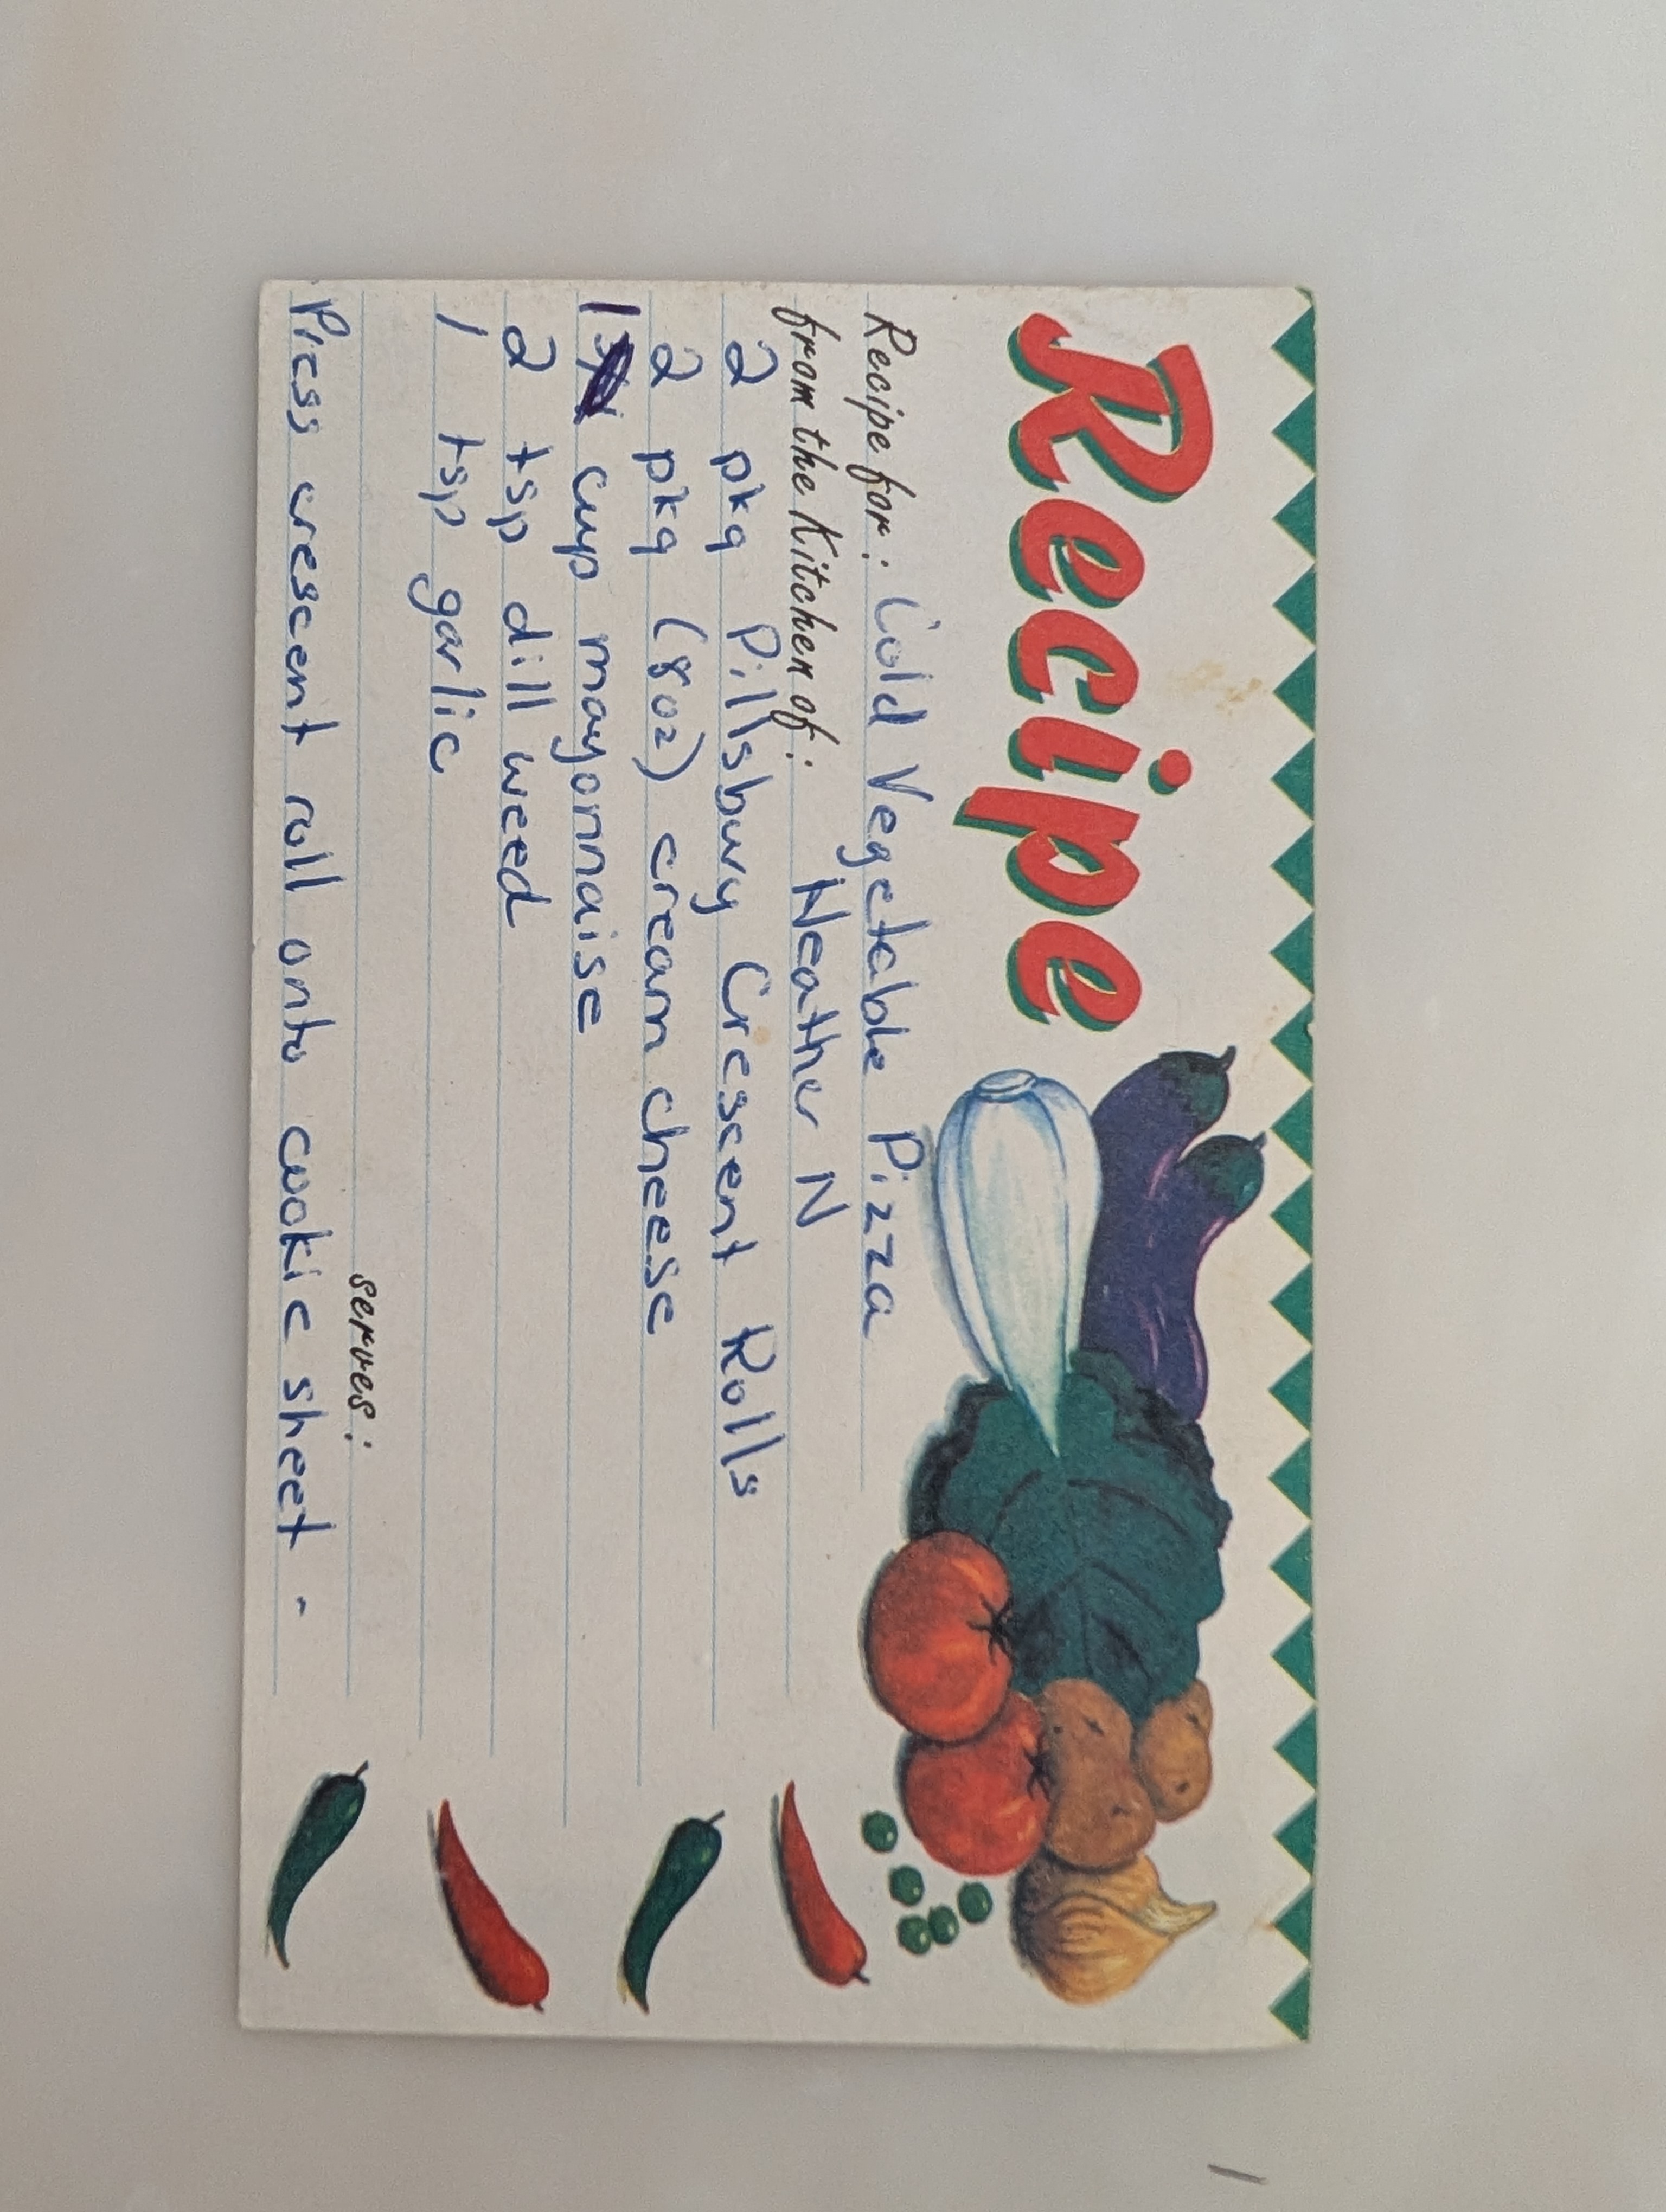 Recipe
Recipe for: Cold Vegetable Pizza
from the Kitchen of: Heather N
2 pkg Pillsbury Crescent Rolls
2 pkg (8oz) cream cheese
1 cup mayonnaise
2 tsp dill weed
1 tsp garlic
serves:
Press crescent roll onto cookie sheet -